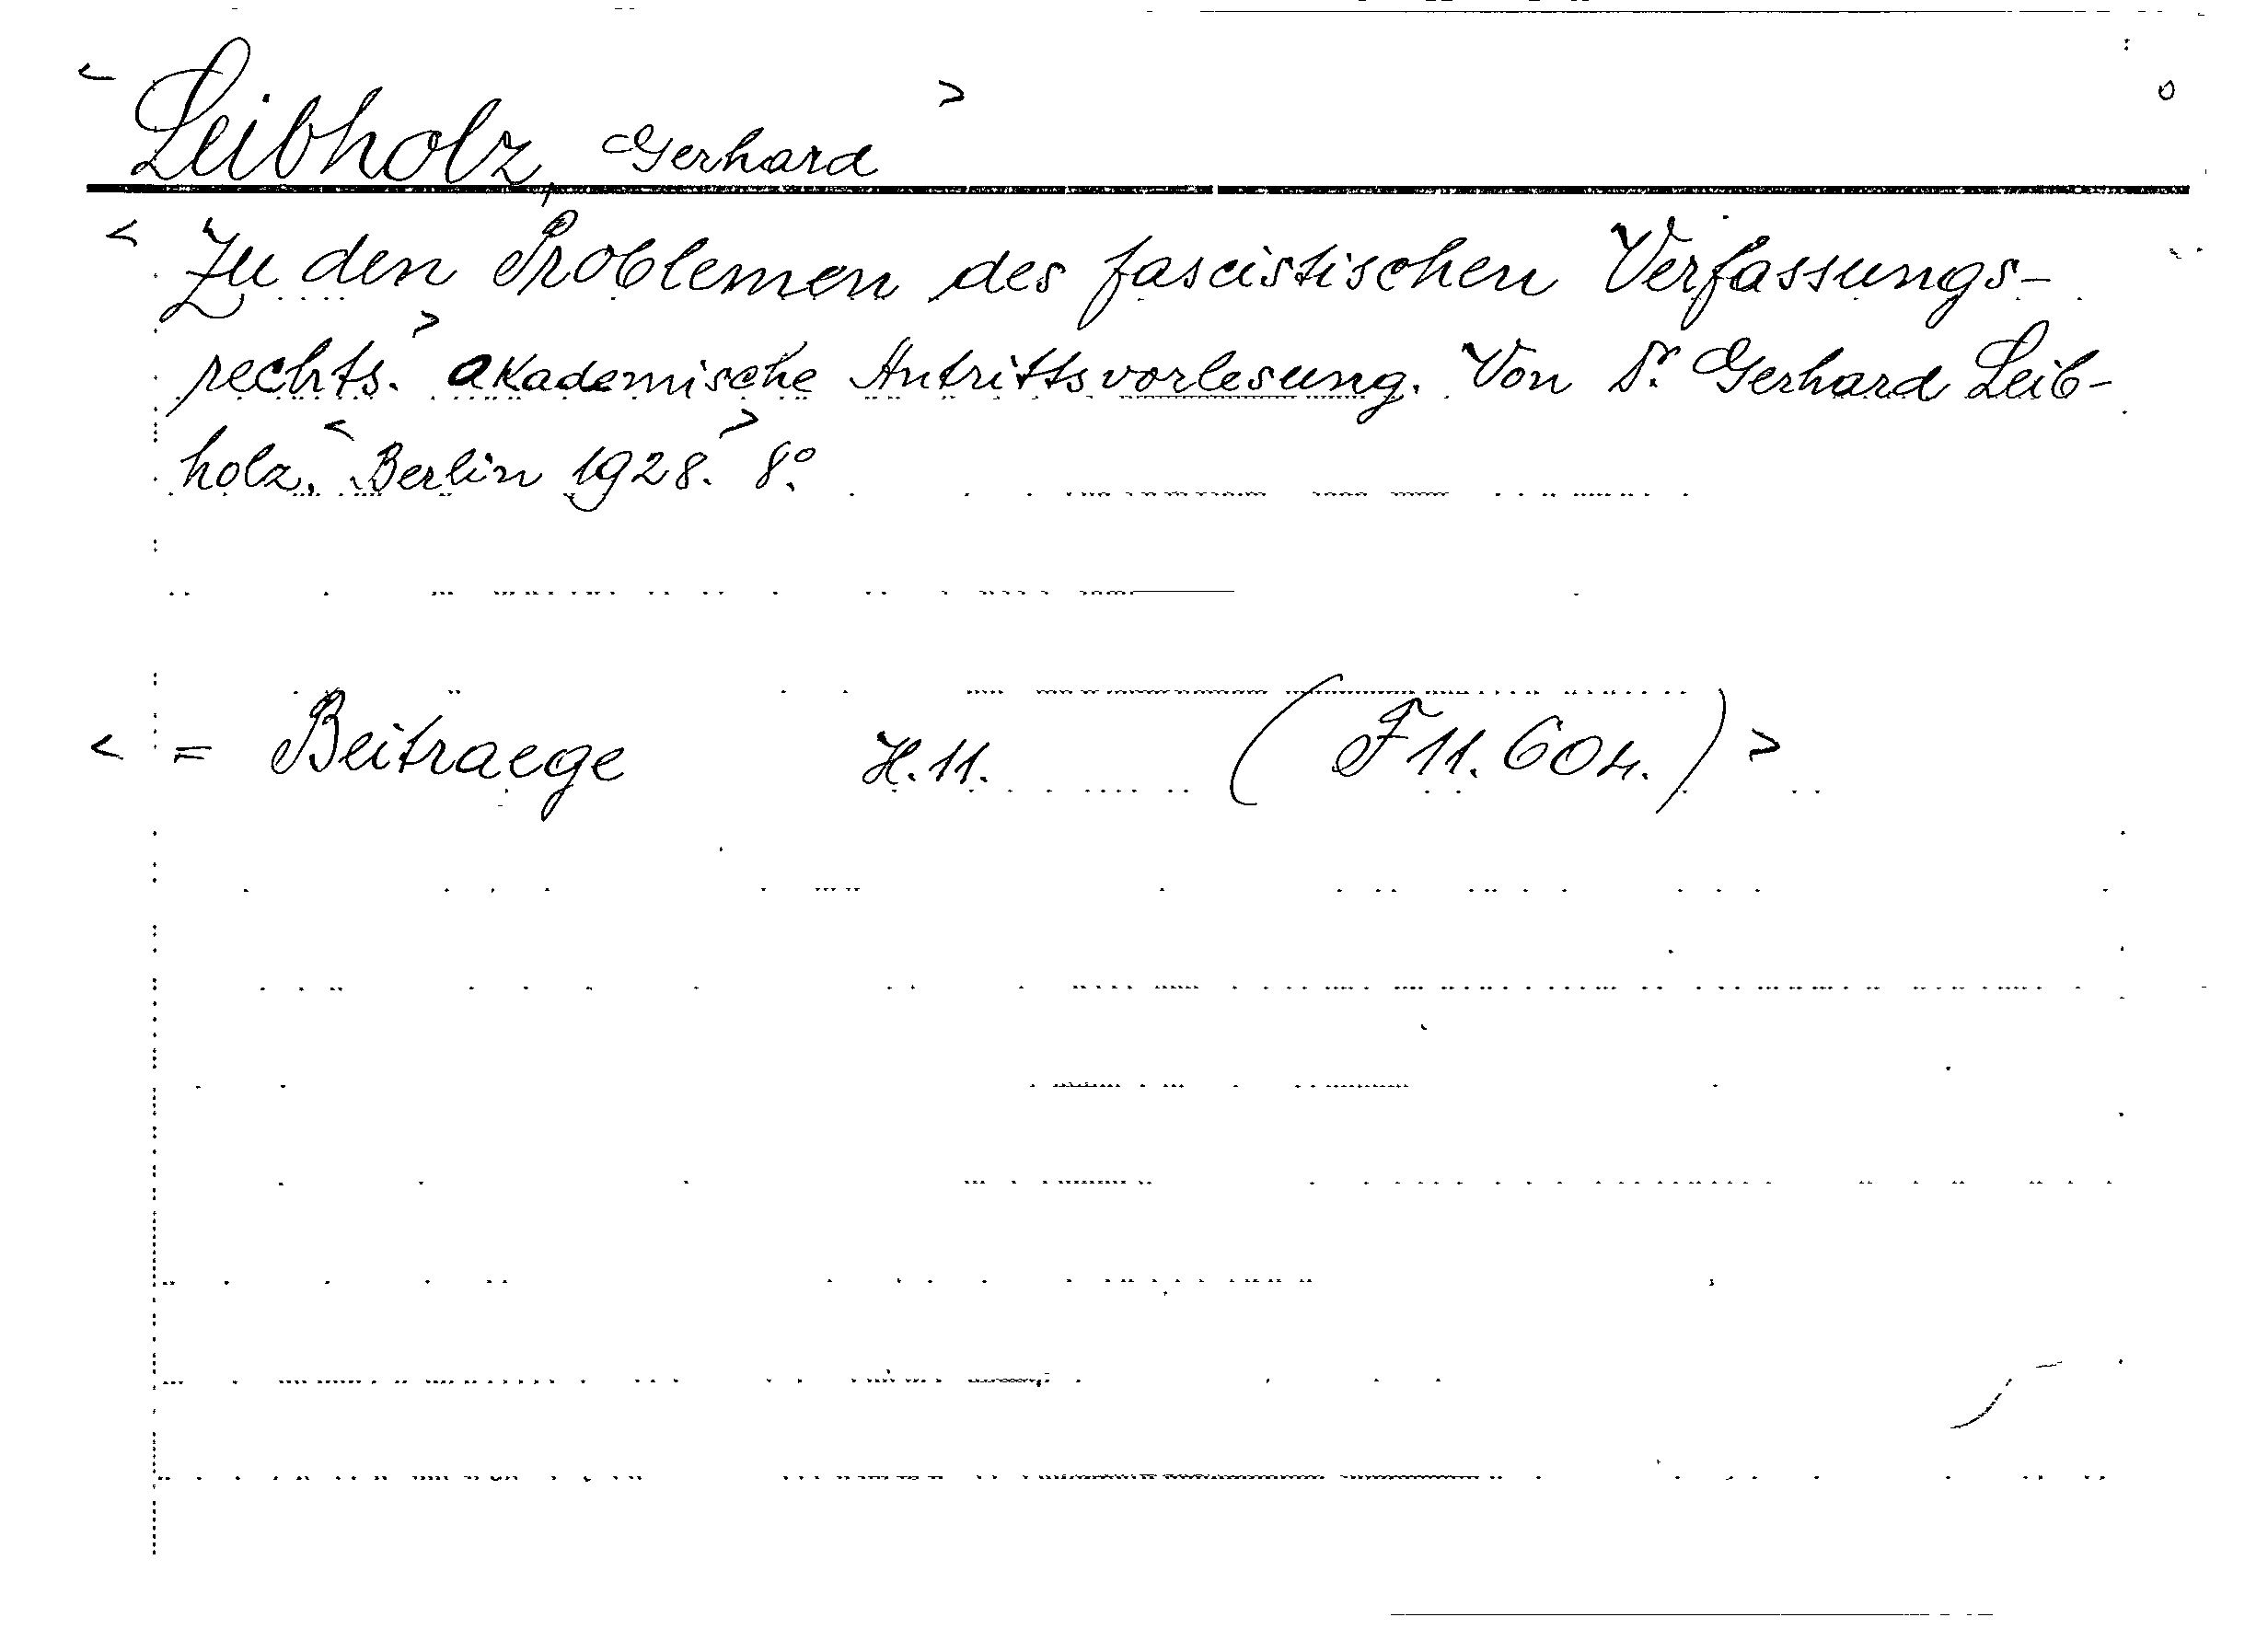 < Leibholz, Gerhard >
< Zu den Problemen des fascistischen Verfassungs-
rechts.> Akademische Antrittsvorlesung. Von Dr. Gerhard Leib-
holz. <Berlin 1928.> 8º.
< = Beitraege H.11. (F 11. 604.) >